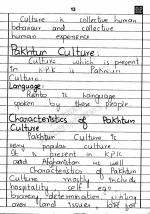 13
Culture is collective human
behaviour and collective
human experience
Pakhtun Culture:
Culture which is present
in KPK is Pakhtun
Culture.
Language:
Pashto is language
spoken by these people.
Characteristics of Pakhtun
Culture
Pakhtun Culture is
very popular culture.
It is present in KPK
and Afghanistan as well
Characteristics of Pakhtun
Culture mostly include
hospitality, self
bravery, determination,
over land issues